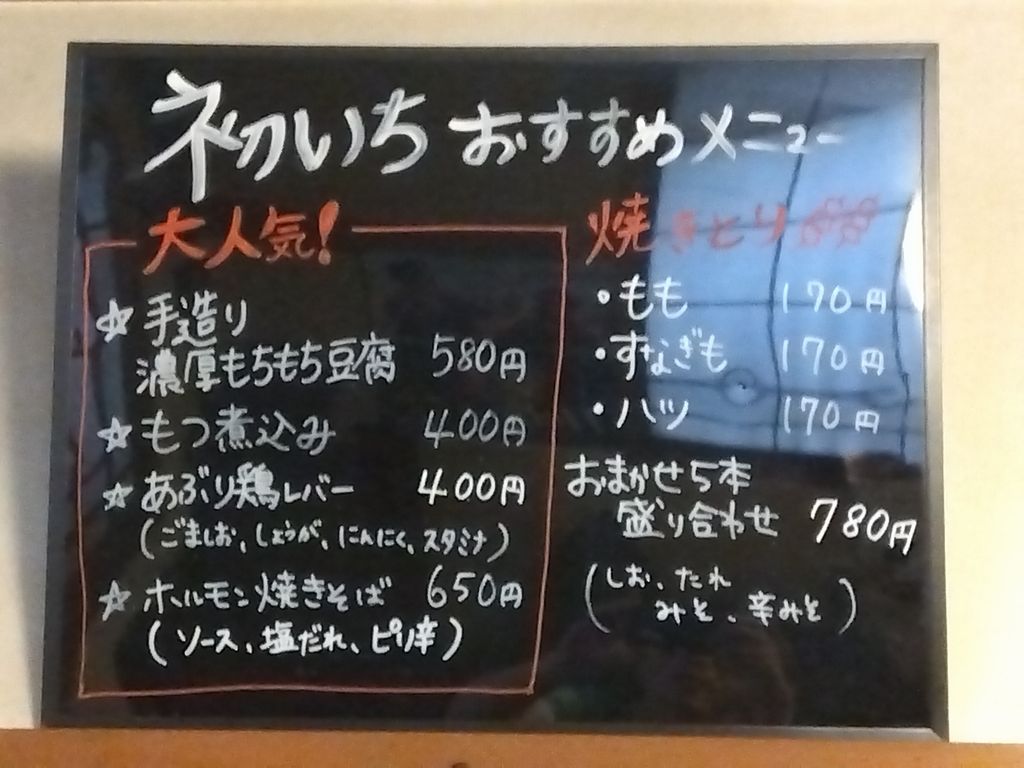 初いち おすすめメニュー
大人気!
☆手造り
濃厚もちもち豆腐 580円
☆もつ煮込み 400円
☆あぶり鶏レバー 400円
(ごましお、しょうが、にんにく、スタミナ)
☆ホルモン焼きそば 650円
(ソース、塩だれ、ピリ辛)
焼きとり
・もも 170円
・すなぎも 170円
・ハツ 170円
おまかせ5本
盛り合わせ 780円
(しお、たれ
みそ、辛みそ)